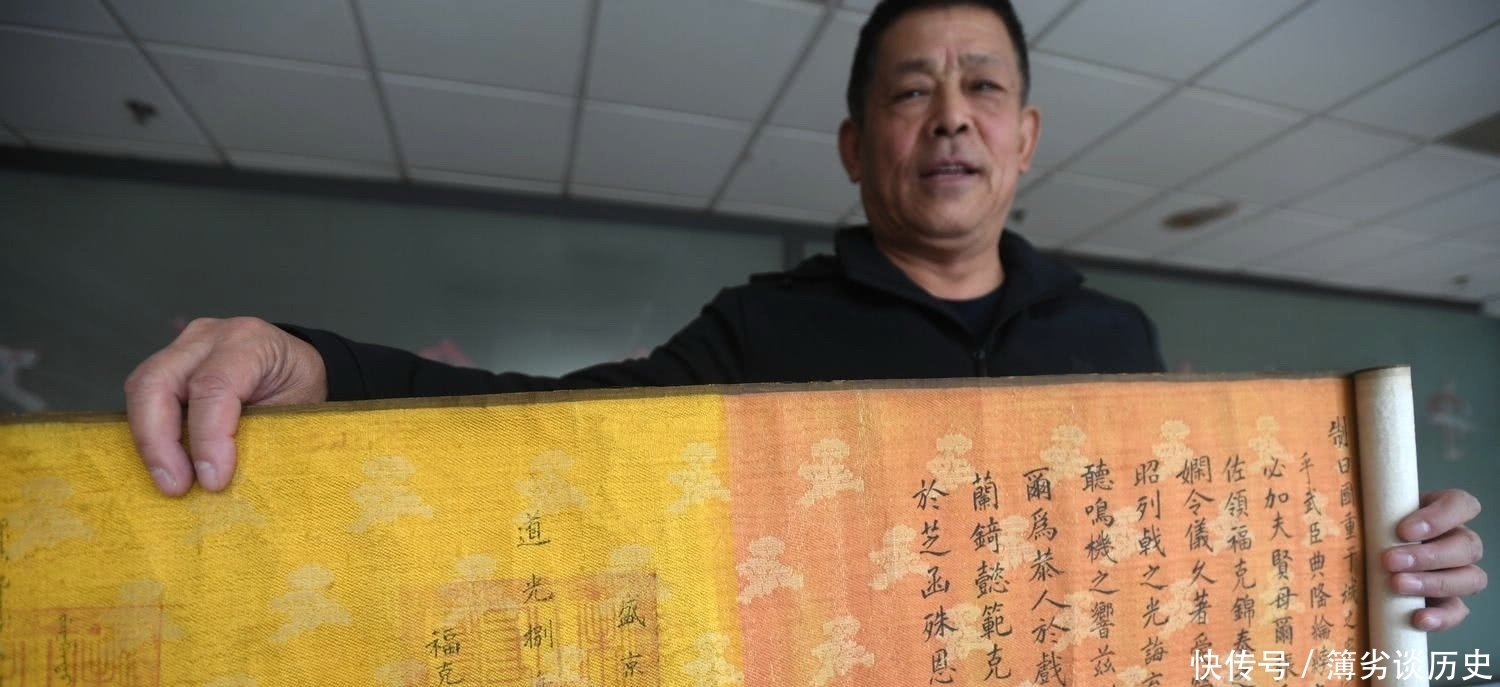 制曰國重干城之
平武臣典隆綸
必加夫賢母爾
佐領福克錦泰
嫻令儀久著
昭列戟之光誨
聽鳴機之響茲
爾為恭人於戲
蘭錡懿範克
於芝函殊恩
盛京
道光捌
福克
快传号 / 簿劣谈历史